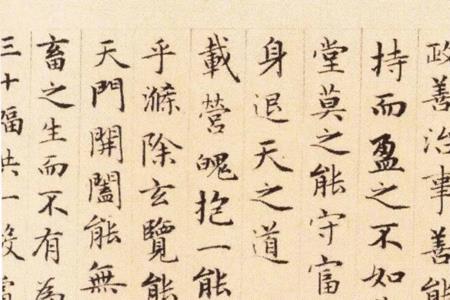 政善治事善能
持而盈之不如
堂莫之能守富
身退天之道
載營魄抱一能
乎滌除玄覽能
天門開闔能無
畜之生而不有為
三十輻共一轂當